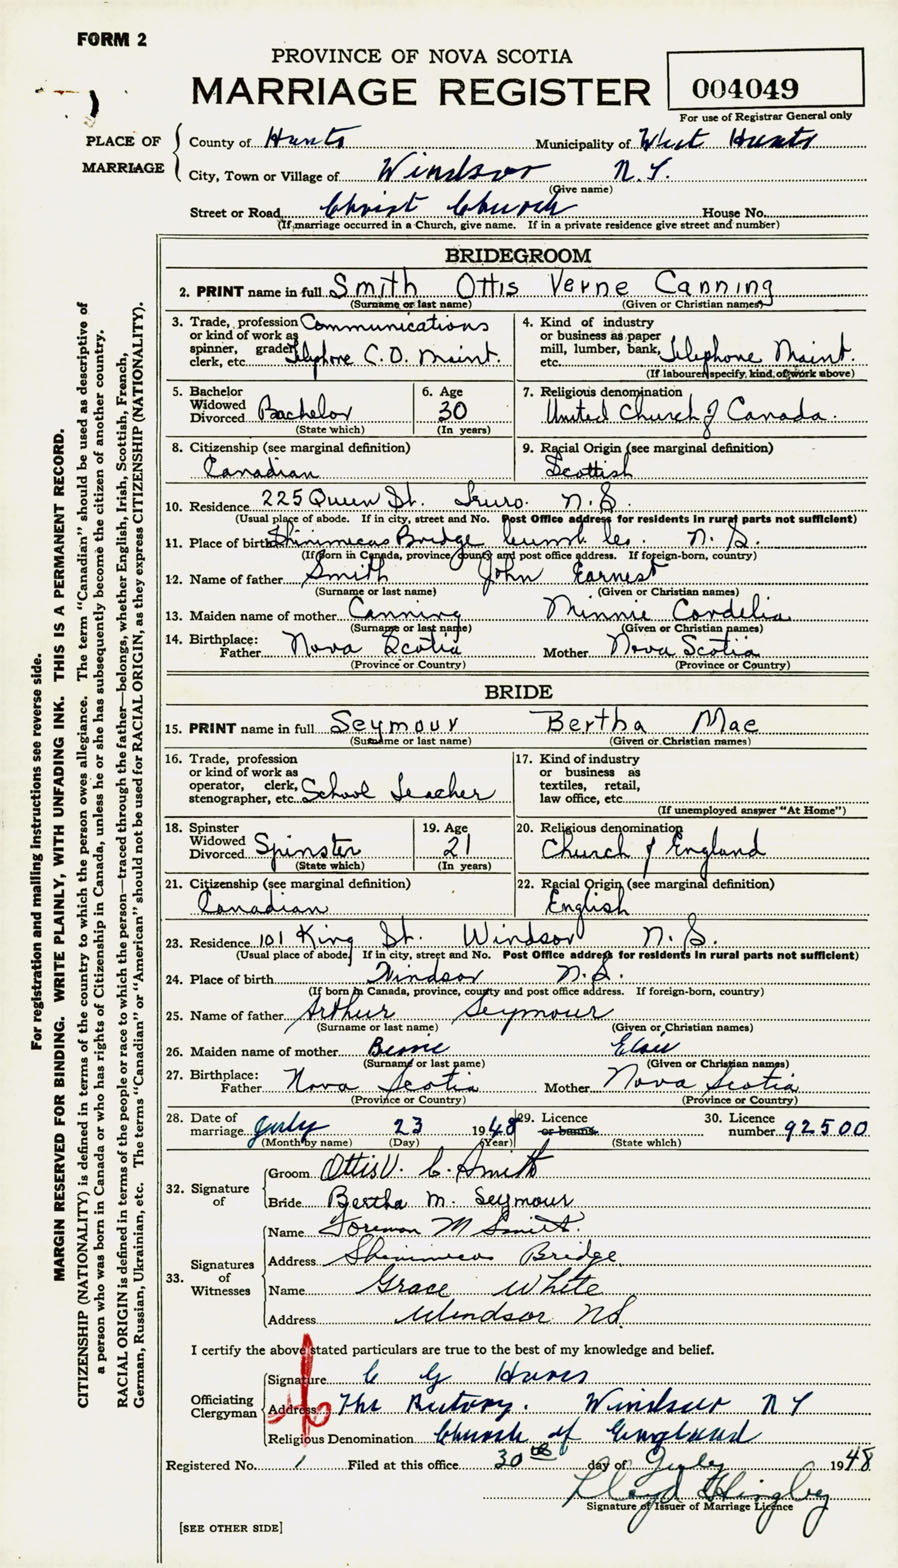 FORM 2
PROVINCE OF NOVA SCOTIA
MARRIAGE REGISTER
004049
For use of Registrar General only
PLACE OF MARRIAGE
County of Hants Municipality of West Hants
City, Town or Village of Windsor N.S.
(Give name)
Street or Road Christ Church House No.
(If marriage occurred in a Church, give name. If in a private residence give street and number)
BRIDEGROOM
2. PRINT name in full Smith Ottis Verne Canning
(Surname or last name) (Given or Christian names)
3. Trade, profession or kind of work as spinner, grader, clerk, etc. Communications Telephone C.O. Maint.
4. Kind of industry or business as paper mill, lumber, bank, etc. Telephone Maint.
(If labourer specify, kind of work above)
5. Bachelor Widowed Divorced Bachelor
(State which)
6. Age 30
(In years)
7. Religious denomination
United Church of Canada.
8. Citizenship (see marginal definition)
Canadian
9. Racial Origin (see marginal definition)
Scottish
10. Residence 225 Queen St. Truro. N.S.
(Usual place of abode. If in city, street and No. Post Office address for residents in rural parts not sufficient)
11. Place of birth Shinimicas Bridge Cumb. Co. N.S.
(If born in Canada, province, county and post office address. If foreign-born, country)
12. Name of father Smith John Earnest
(Surname or last name) (Given or Christian names)
13. Maiden name of mother Canning Minnie Cordelia
(Surname or last name) (Given or Christian names)
14. Birthplace:
Father Nova Scotia Mother Nova Scotia
(Province or Country) (Province or Country)
BRIDE
15. PRINT name in full Seymour Bertha Mae
(Surname or last name) (Given or Christian names)
16. Trade, profession or kind of work as operator, clerk, stenographer, etc. School Teacher
17. Kind of industry or business as textiles, retail, law office, etc.
(If unemployed answer "At Home")
18. Spinster Widowed Divorced Spinster
(State which)
19. Age 21
(In years)
20. Religious denomination
Church of England
21. Citizenship (see marginal definition)
Canadian
22. Racial Origin (see marginal definition)
English
23. Residence 101 King St. Windsor N.S.
(Usual place of abode. If in city, street and No. Post Office address for residents in rural parts not sufficient)
24. Place of birth Windsor N.S.
(If born in Canada, province, county and post office address. If foreign-born, country)
25. Name of father Arthur Seymour
(Surname or last name) (Given or Christian names)
26. Maiden name of mother Elsie
(Surname or last name) (Given or Christian names)
27. Birthplace:
Father Nova Scotia Mother Nova Scotia
(Province or Country) (Province or Country)
28. Date of marriage July 23 1948
(Month by name) (Day) (Year)
29. Licence or banns
(State which)
30. Licence number 92500
32. Signature of
Groom Ottis V. C. Smith
Bride Bertha M. Seymour
33. Signatures of Witnesses
Name M Smith
Address Shinimicas Bridge
Name Grace White
Address Windsor NS.
I certify the above stated particulars are true to the best of my knowledge and belief.
Officiating Clergyman
Signature C G
Address The Rectory. Windsor N S
Religious Denomination Church of England
Registered No. 1 Filed at this office 30th day of July 1948
Lloyd
Signature of Issuer of Marriage Licence
[SEE OTHER SIDE]
For registration and mailing instructions see reverse side.
MARGIN RESERVED FOR BINDING. WRITE PLAINLY, WITH UNFADING INK. THIS IS A PERMANENT RECORD.
CITIZENSHIP (NATIONALITY) is defined in terms of the country to which the person owes allegiance. The term "Canadian" should be used as descriptive of
a person who was born in Canada or who has rights of Citizenship in Canada, unless he or she has subsequently become the citizen of another country.
RACIAL ORIGIN is defined in terms of the people or race to which the person—traced through the father—belongs, whether English, Irish, Scottish, French,
German, Russian, Ukrainian, etc. The terms "Canadian" or "American" should not be used for RACIAL ORIGIN, as they express CITIZENSHIP (NATIONALITY).